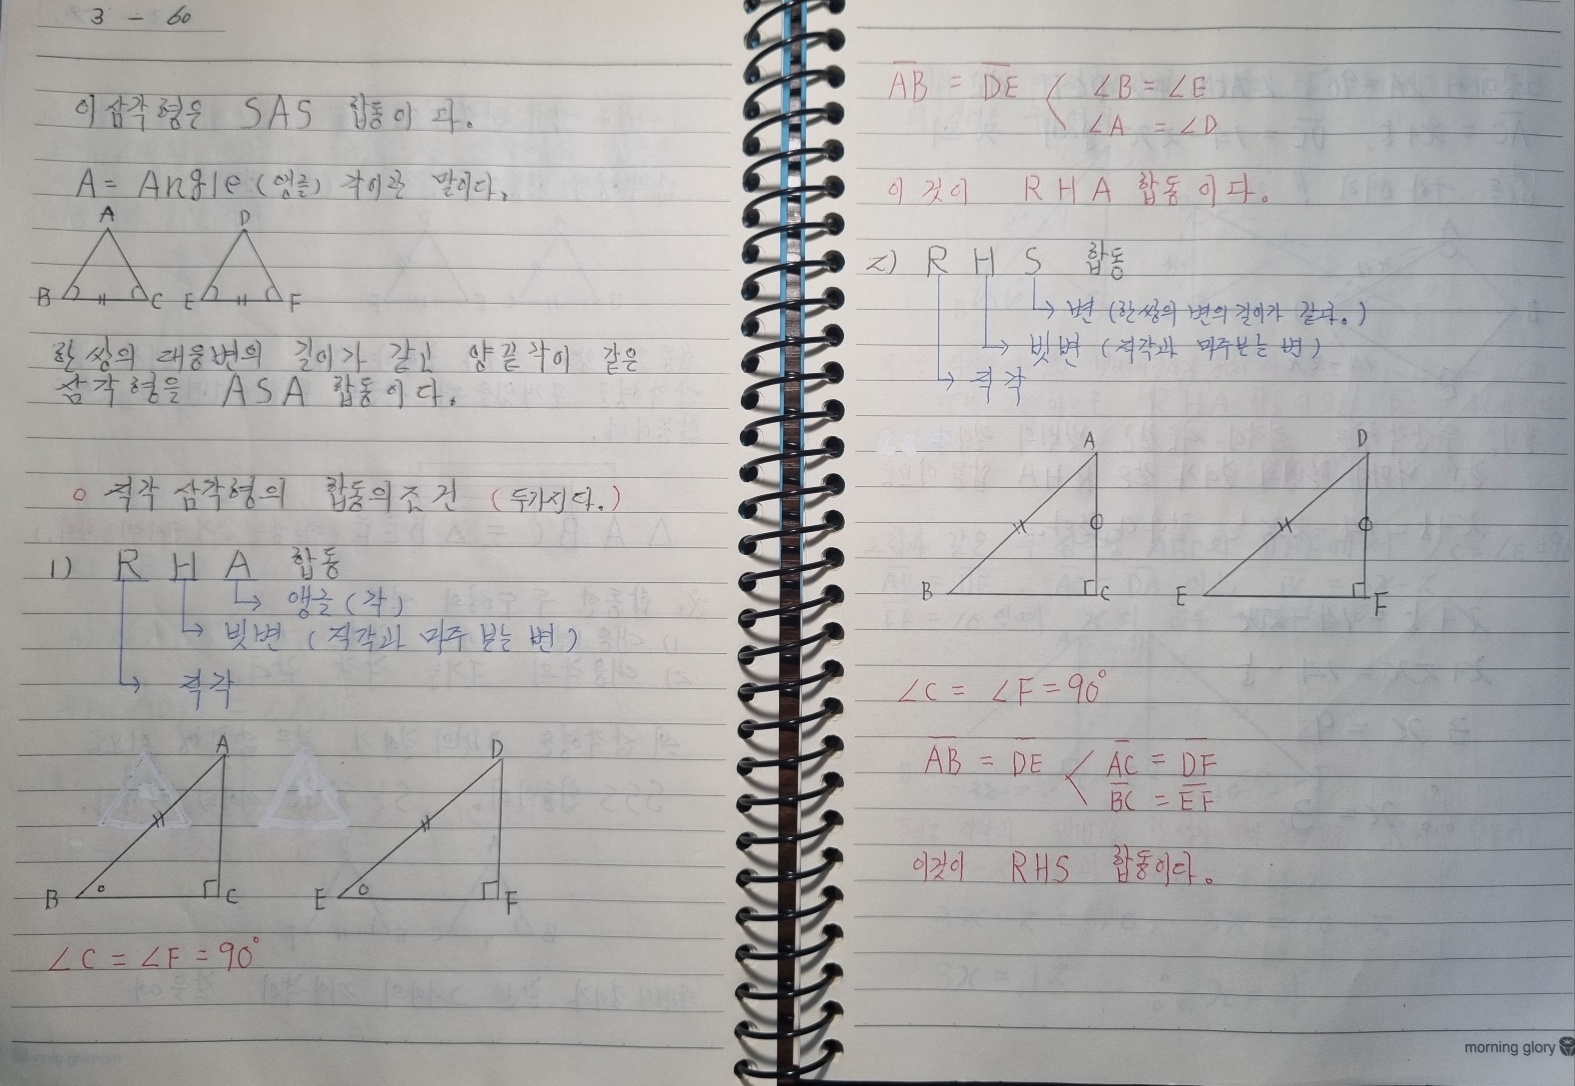 3 - 60
이 삼각형은 SAS 합동이 다.
A = Angle (앵글) 각이란 말이다.
A D
B C E F
한 쌍의 대응변의 길이가 같고 양끝각이 같은
삼각형을 ASA 합동이다.
○ 직각 삼각형의 합동의조건 (두가지다.)
1) R H A 합동
→ 앵글 (각)
→ 빗변 (직각과 마주 보는 변)
→ 직각
A D
B C E F
∠C = ∠F = 90°
A̅B̅ = D̅E̅ < ∠B = ∠E
∠A = ∠D
이 것이 R H A 합동 이다.
2) R H S 합동
→ 변 (한쌍의 변의 길이가 같다.)
→ 빗변 (직각과 마주보는 변)
→ 직각
A D
B C E F
∠C = ∠F = 90°
A̅B̅ = D̅E̅ < A̅C̅ = D̅F̅
B̅C̅ = E̅F̅
이것이 RHS 합동이다.
morning glory